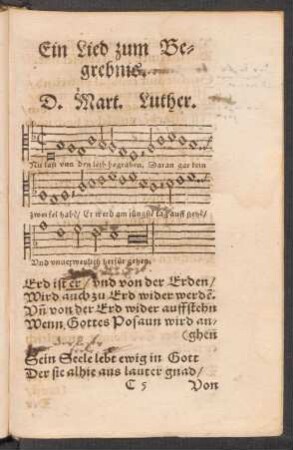 Ein Lied zum Be-
grebnis.
D. Mart. Luther.
Nu last vns den leib begraben, Daran gar kein
zweifel habē/ Er werd am jüngstē tag auff stehn/
Vnd vnuerweslich herfür gehen.
Erd ist er/ vnd von der Erden/
Wird auch zu Erd wider werdē
Vñ von der Erd wider auffstehn
Wenn Gottes Posaun wird an-
(ghen
Sein Seele lebt ewig in Gott
Der sie alhie aus lauter gnad/
C 5 Von